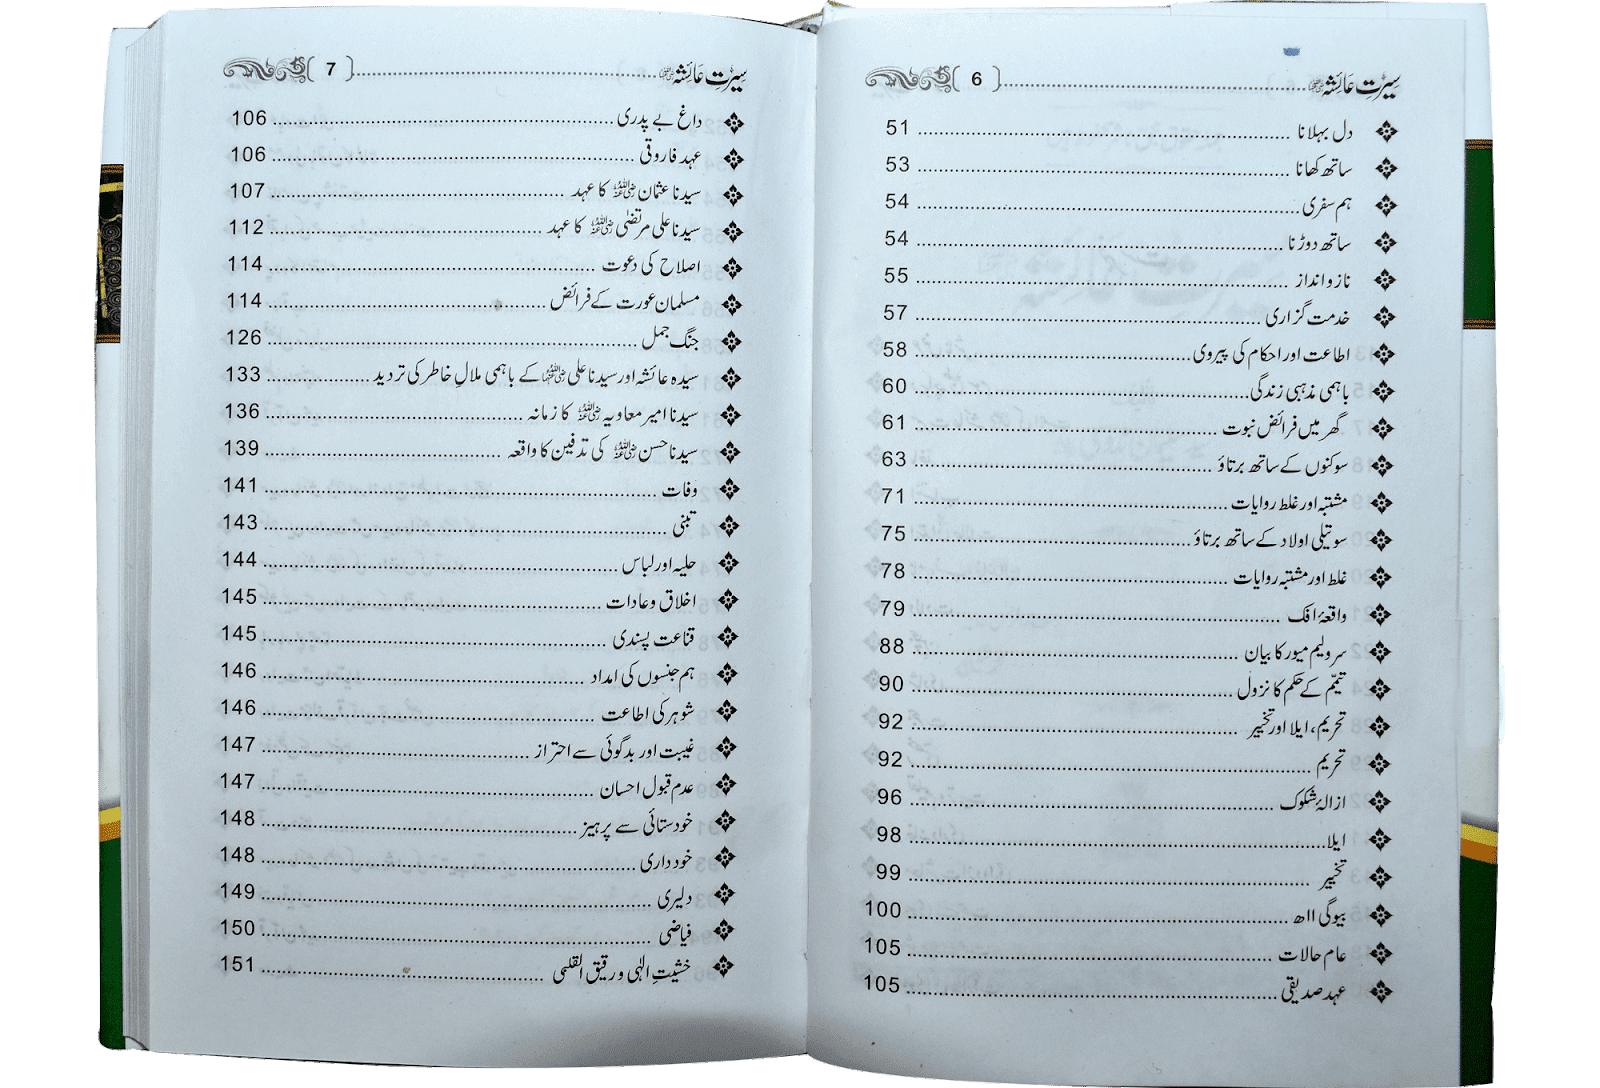 سیرتِ عائشہ ؓ ........ { 6 }
دل بہلانا ........ 51
ساتھ کھانا ........ 53
ہم سفری ........ 54
ساتھ دوڑنا ........ 54
ناز و انداز ........ 55
خدمت گزاری ........ 57
اطاعت اور احکام کی پیروی ........ 58
باہمی مذہبی زندگی ........ 60
گھر میں فرائض نبوت ........ 61
سوکنوں کے ساتھ برتاؤ ........ 63
مشتبہ اور غلط روایات ........ 71
سوتیلی اولاد کے ساتھ برتاؤ ........ 75
غلط اور مشتبہ روایات ........ 78
واقعۂ افک ........ 79
سر ولیم میور کا بیان ........ 88
تیمّم کے حکم کا نزول ........ 90
تحریم، ایلا اور تخییر ........ 92
تحریم ........ 92
ازالۂ شکوک ........ 96
ایلا ........ 98
تخییر ........ 99
بیوگی ۱۱ھ ........ 100
عام حالات ........ 105
عہد صدیقی ........ 105
سیرتِ عائشہ ؓ ........ { 7 }
داغ بے پدری ........ 106
عہد فاروقی ........ 106
سیدنا عثمان ؓ کا عہد ........ 107
سیدنا علی مرتضیٰ ؓ کا عہد ........ 112
اصلاح کی دعوت ........ 114
مسلمان عورت کے فرائض ........ 114
جنگ جمل ........ 126
سیدہ عائشہ اور سیدنا علی ؓ کے باہمی ملالِ خاطر کی تردید ........ 133
سیدنا امیر معاویہ ؓ کا زمانہ ........ 136
سیدنا حسن ؓ کی تدفین کا واقعہ ........ 139
وفات ........ 141
تبنی ........ 143
حلیہ اور لباس ........ 144
اخلاق و عادات ........ 145
قناعت پسندی ........ 145
ہم جنسوں کی امداد ........ 146
شوہر کی اطاعت ........ 146
غیبت اور بدگوئی سے احتراز ........ 147
عدم قبول احسان ........ 147
خودستائی سے پرہیز ........ 148
خود داری ........ 148
دلیری ........ 149
فیاضی ........ 150
خشیتِ الٰہی و رقیق القلبی ........ 151